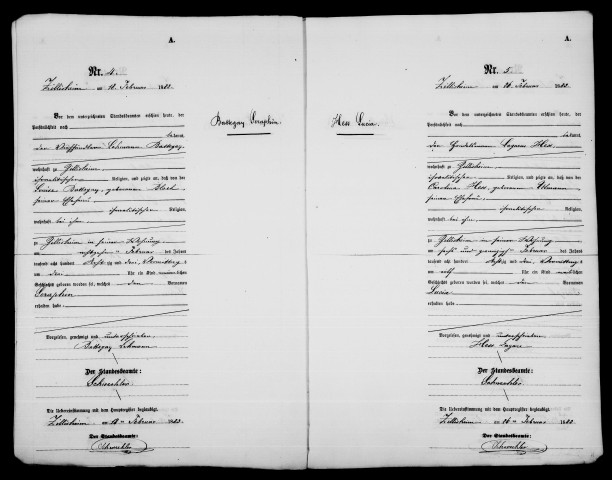 A.
Nr. 4.
Zillisheim, am 18. Februar 1883.
Vor dem unterzeichneten Standesbeamten erschien heute, der
Persönlichkeit nach
bekannt,
der Lehmann Battegay,
wohnhaft zu Zillisheim
israelitischer Religion, und zeigte an, daß von der
Louisa Battegay, geborenen Bloch
seiner Ehefrau
israelitischer Religion,
wohnhaft bei ihm
zu Zillisheim in seiner Wohnung
am Februar des Jahres
tausend acht hundert achtzig und drei, Vormittags
um drei Uhr ein Kind männlichen
Geschlechts geboren worden sei, welches den Vornamen
Seraphin
erhalten habe.
Vorgelesen, genehmigt und unterschrieben
Battegay Lehmann
Der Standesbeamte:
Die Uebereinstimmung mit dem Hauptregister beglaubigt.
Zillisheim, am 18ten Februar 1883.
Der Standesbeamte:
Battegay Seraphin.
A.
Nr. 5.
Zillisheim, am 26. Februar 1883.
Vor dem unterzeichneten Standesbeamten erschien heute, der
Persönlichkeit nach
bekannt,
der Handelsmann Lazarus Hess,
wohnhaft zu Zillisheim
israelitischer Religion, und zeigte an, daß von der
Carolina Hess, geborenen Ulmann
seiner Ehefrau
israelitischer Religion,
wohnhaft bei ihm
zu Zillisheim in seiner Wohnung
am sechs und zwanzigsten Februar des Jahres
tausend acht hundert achtzig und drei, Vormittags
um elf Uhr ein Kind weiblichen
Geschlechts geboren worden sei, welches den Vornamen
Lucia
erhalten habe.
Vorgelesen, genehmigt und unterschrieben
Hess Lazare
Der Standesbeamte:
Die Uebereinstimmung mit dem Hauptregister beglaubigt.
Zillisheim, am 26ten Februar 1883.
Der Standesbeamte:
Hess Lucia.